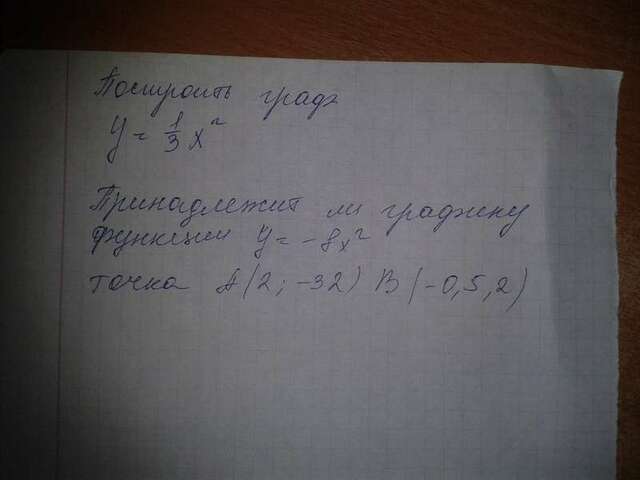 Построить граф
y = 1/3 x²
Принадлежит ли графику
функции y = -8x²
точка A(2; -32) B(-0,5, 2)